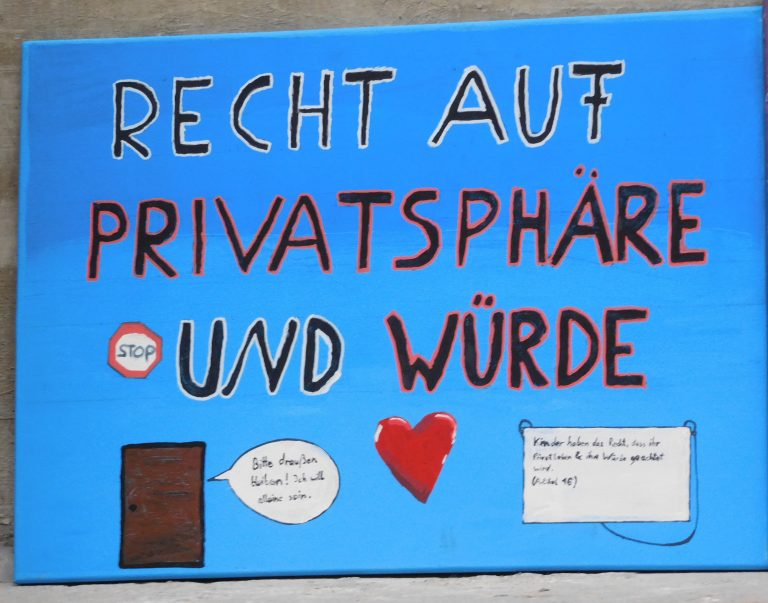 RECHT AUF
PRIVATSPHÄRE
STOP UND WÜRDE
Bitte draußen
bleiben! Ich will
alleine sein.
Kinder haben das Recht, dass ihr
Privatleben & ihre Würde geachtet
wird.
(Artikel 16)